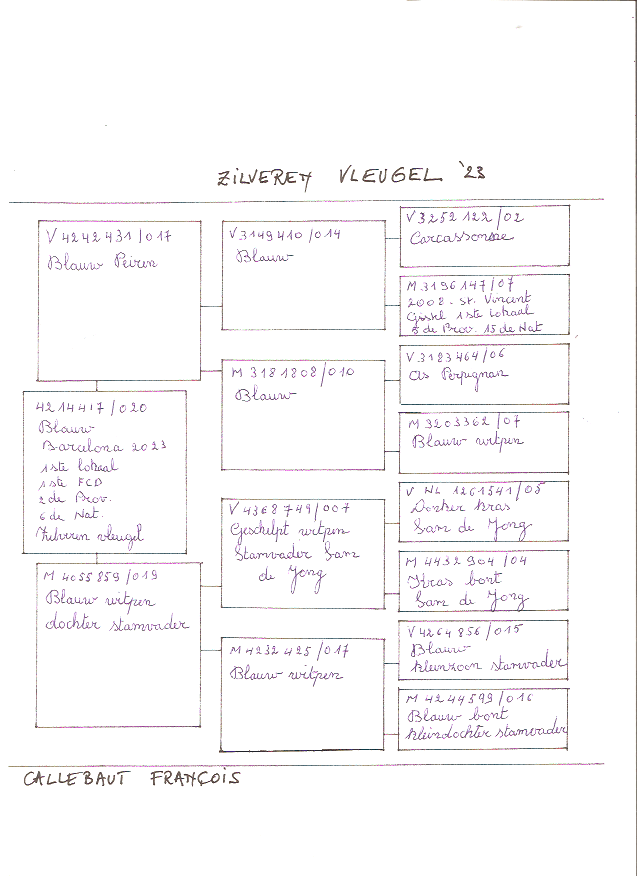 ZILVEREN VLEUGEL '23
V 4242431/017
Blauw Peiren
V 3149410/014
Blauw
V 3252122/02
Carcassonne
M 3196147/07
2008 - St. Vincent
Gistel 1ste lokaal
6 de Prov. 15 de Nat
M 3181808/010
Blauw
V 3183464/06
As Perpignan
M 3203362/07
Blauw witpen
4214417/020
Blauw
Barcelona 2023
1ste lokaal
1ste FCD
2 de Prov.
6 de Nat.
Zilveren vleugel
M 4055859/019
Blauw witpen
dochter stamvader
V 4368749/007
Geschelpt witpen
Stamvader Sam
de Jong
V NL 1261541/05
Donker kras
Sam de Jong
M 4432904/04
Kras bont
Sam de Jong
M 4232425/017
Blauw witpen
V 4264856/015
Blauw
kleinzoon stamvader
M 4244599/016
Blauw bont
kleindochter stamvader
CALLEBAUT FRANÇOIS